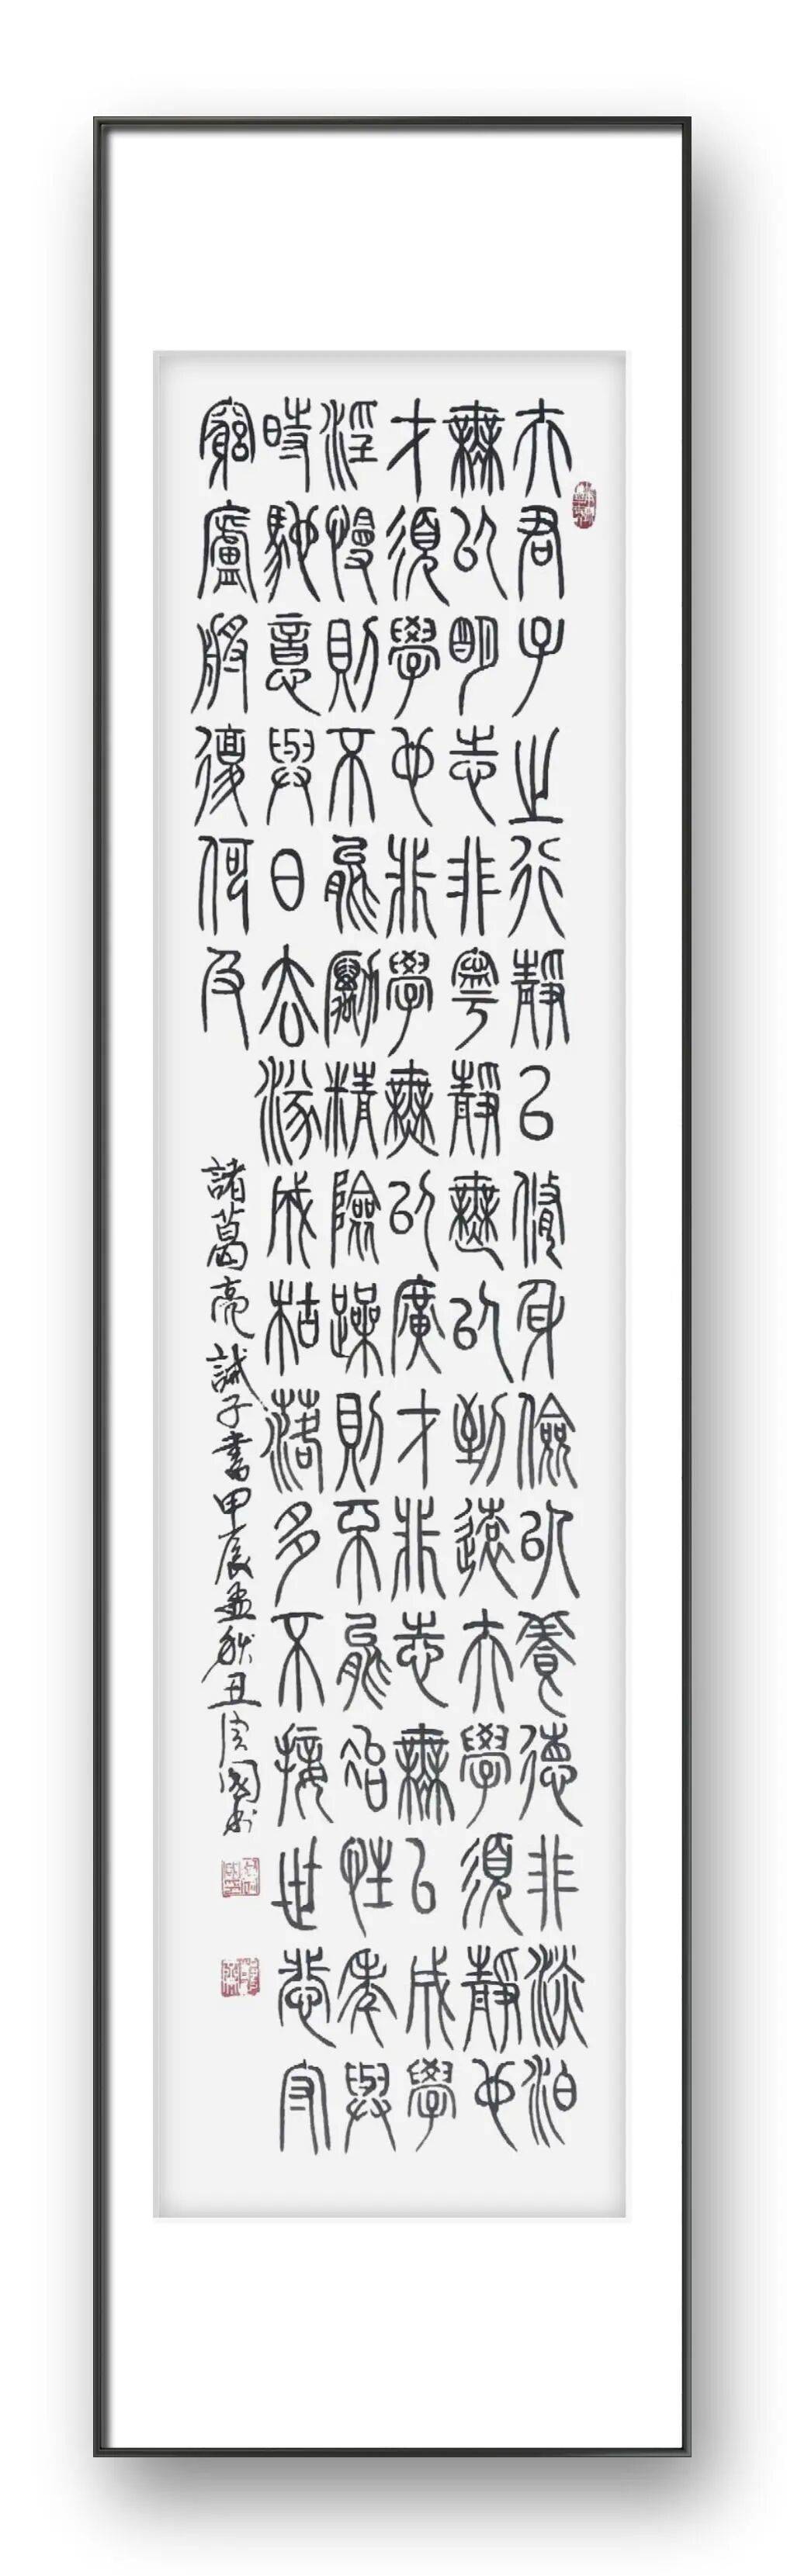 夫君子之行靜以脩身儉以養德非淡泊
無以明志非寧靜無以致遠夫學須靜也
才須學也非學無以廣才非志無以成學
淫慢則不能勵精險躁則不能治性年與
時馳意與日去遂成枯落多不接世悲守
窮廬將復何及
諸葛亮誡子書甲辰孟秋丑國